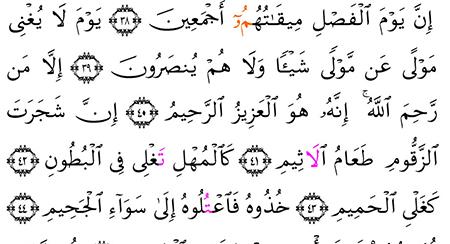 إِنَّ يَوْمَ اَ۬لْفَصْلِ مِيقَٰتُهُمُۥٓ أَجْمَعِينَ ٣٨ يَوْمَ لَا يُغْنِى
مَوْلًى عَن مَّوْلًى شَيْـًٔا وَلَا هُمْ يُنصَرُونَ ٣٩ إِلَّا مَن
رَّحِمَ اَ۬للَّهُۚ إِنَّهُۥ هُوَ اَ۬لْعَزِيزُ اُ۬لرَّحِيمُ ٤٠ إِنَّ شَجَرَتَ
اَ۬لزَّقُّومِ طَعَامُ اُ۬لَاثِيمِ ٤١ كَالْمُهْلِ تَغْلِى فِى اِ۬لْبُطُونِ ٤٢
كَغَلْىِ اِ۬لْحَمِيمِ ٤٣ خُذُوهُ فَاعْتُلُوهُ إِلَىٰ سَوَآءِ اِ۬لْجَحِيمِ ٤٤